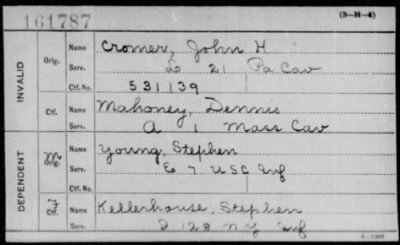 161787
(3-H-4)
INVALID
Orig. Name Cromer, John H
Serv. L 21 Pa Cav
Ctf. No. 531139
Ctf. Name Mahoney, Dennis
Serv. A 1 Mass Cav
DEPENDENT
M Orig. Name Young, Stephen
Serv. E 7 U S C Inf
Ctf. No.
F Ctf. Name Kellerhouse, Stephen
Serv. 128 NY Inf